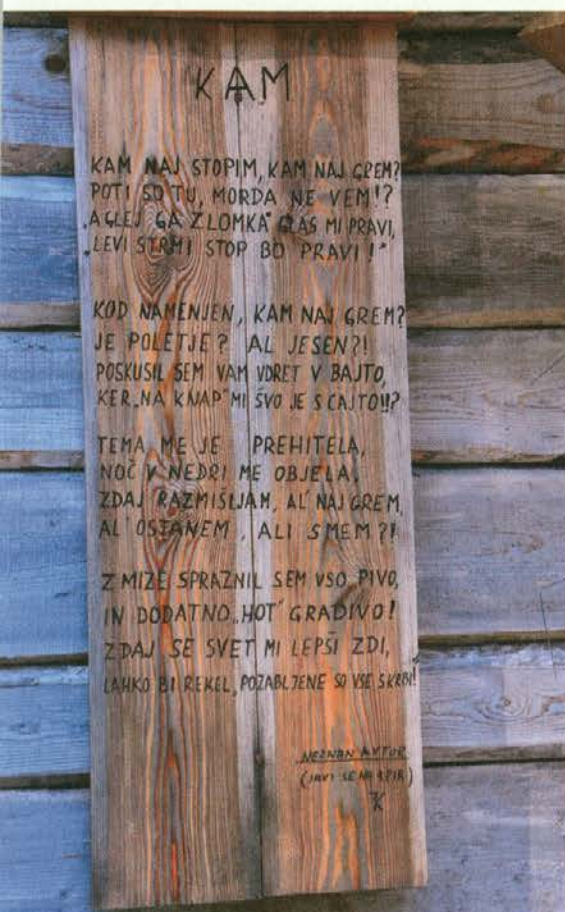 KAM
KAM NAJ STOPIM, KAM NAJ GREM?
POTI SO TU, MORDA NE VEM!?
"A GLEJ GA ZLOMKA" GLAS MI PRAVI,
"LEVI STRMI STOP BO PRAVI!"
KOD NAMENJEN, KAM NAJ GREM?
JE POLETJE? AL JESEN?!
POSKUSIL SEM VAM VDRET V BAJTO,
KER "NA KNAP" MI ŠVO JE S CAJTO!!?
TEMA ME JE PREHITELA,
NOČ V NEDRI ME OBJELA,
ZDAJ RAZMIŠLJAM, AL' NAJ GREM,
AL' OSTANEM, ALI SMEM?!
Z MIZE SPRAZNIL SEM VSO PIVO,
IN DODATNO "HOT" GRADIVO!
ZDAJ SE SVET MI LEPŠI ZDI,
LAHKO BI REKEL, POZABLJENE SO VSE SKRBI!
NEZNAN AVTOR
(JAVI SE NA ŠPIK)